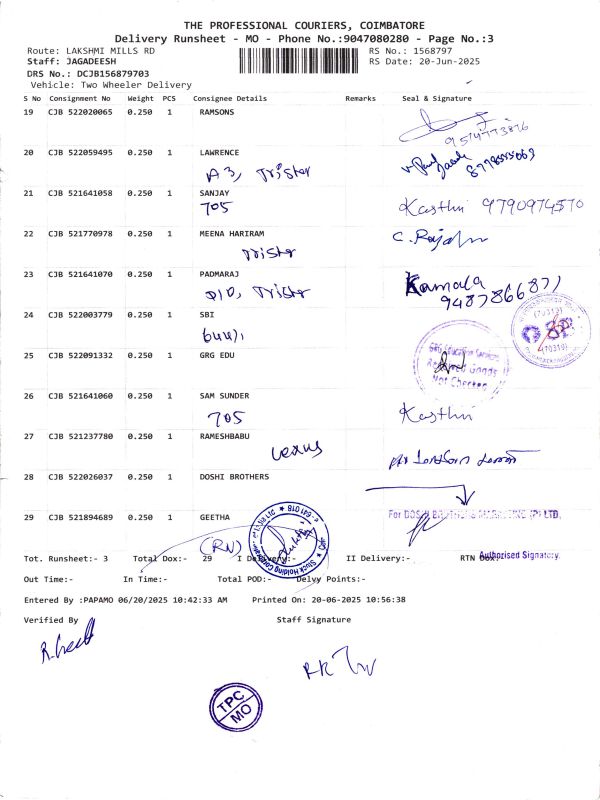 THE PROFESSIONAL COURIERS, COIMBATORE
Delivery Runsheet - MO - Phone No.:9047080280 - Page No.:3
Route: LAKSHMI MILLS RD RS No.: 1568797
Staff: JAGADEESH RS Date: 20-Jun-2025
DRS No.: DCJB156879703
Vehicle: Two Wheeler Delivery
S No Consignment No Weight PCS Consignee Details Remarks Seal & Signature
19 CJB 522020065 0.250 1 RAMSONS
9514773876
20 CJB 522059495 0.250 1 LAWRENCE
A3, Trister
21 CJB 521641058 0.250 1 SANJAY
705 Kasthuri 9790974570
22 CJB 521770978 0.250 1 MEENA HARIRAM
Trister
23 CJB 521641070 0.250 1 PADMARAJ Kamala
Trister 9487866877
24 CJB 522003779 0.250 1 SBI
(70313)
(70313)
25 CJB 522091332 0.250 1 GRG EDU
GRG Education Services
Received Goods
Not Checked
26 CJB 521641060 0.250 1 SAM SUNDER
705 Kasthuri
27 CJB 521237780 0.250 1 RAMESHBABU
Lexus
28 CJB 522026037 0.250 1 DOSHI BROTHERS
29 CJB 521894689 0.250 1 GEETHA
For DOSHI BROTHERS MARKETING (P) LTD.
(RN)
Stock Holding Corporation of India Ltd
Tot. Runsheet:- 3 Total Dox:- 29 I Delivery:- II Delivery:- RTN Dox:-
Authorised Signatory.
Out Time:- In Time:- Total POD:- Delvy Points:-
Entered By :PAPAMO 06/20/2025 10:42:33 AM Printed On: 20-06-2025 10:56:38
Verified By Staff Signature
TPC
MO